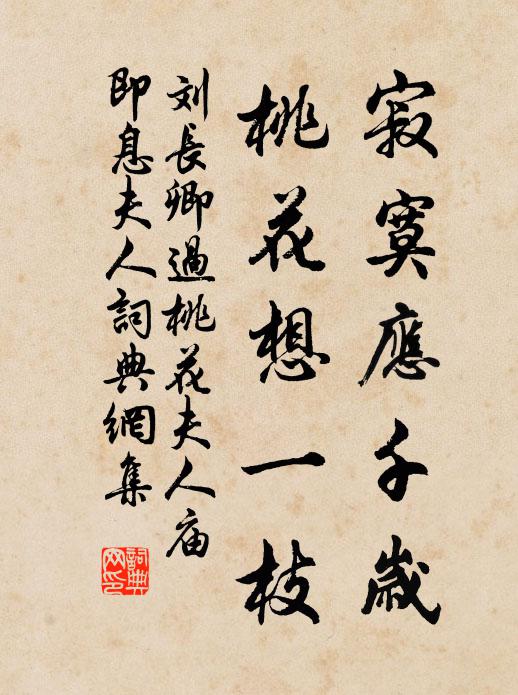 寂寞應千歲
桃花想一枝
刘長卿過桃花夫人庙
即息夫人詞典網集
詞典网印